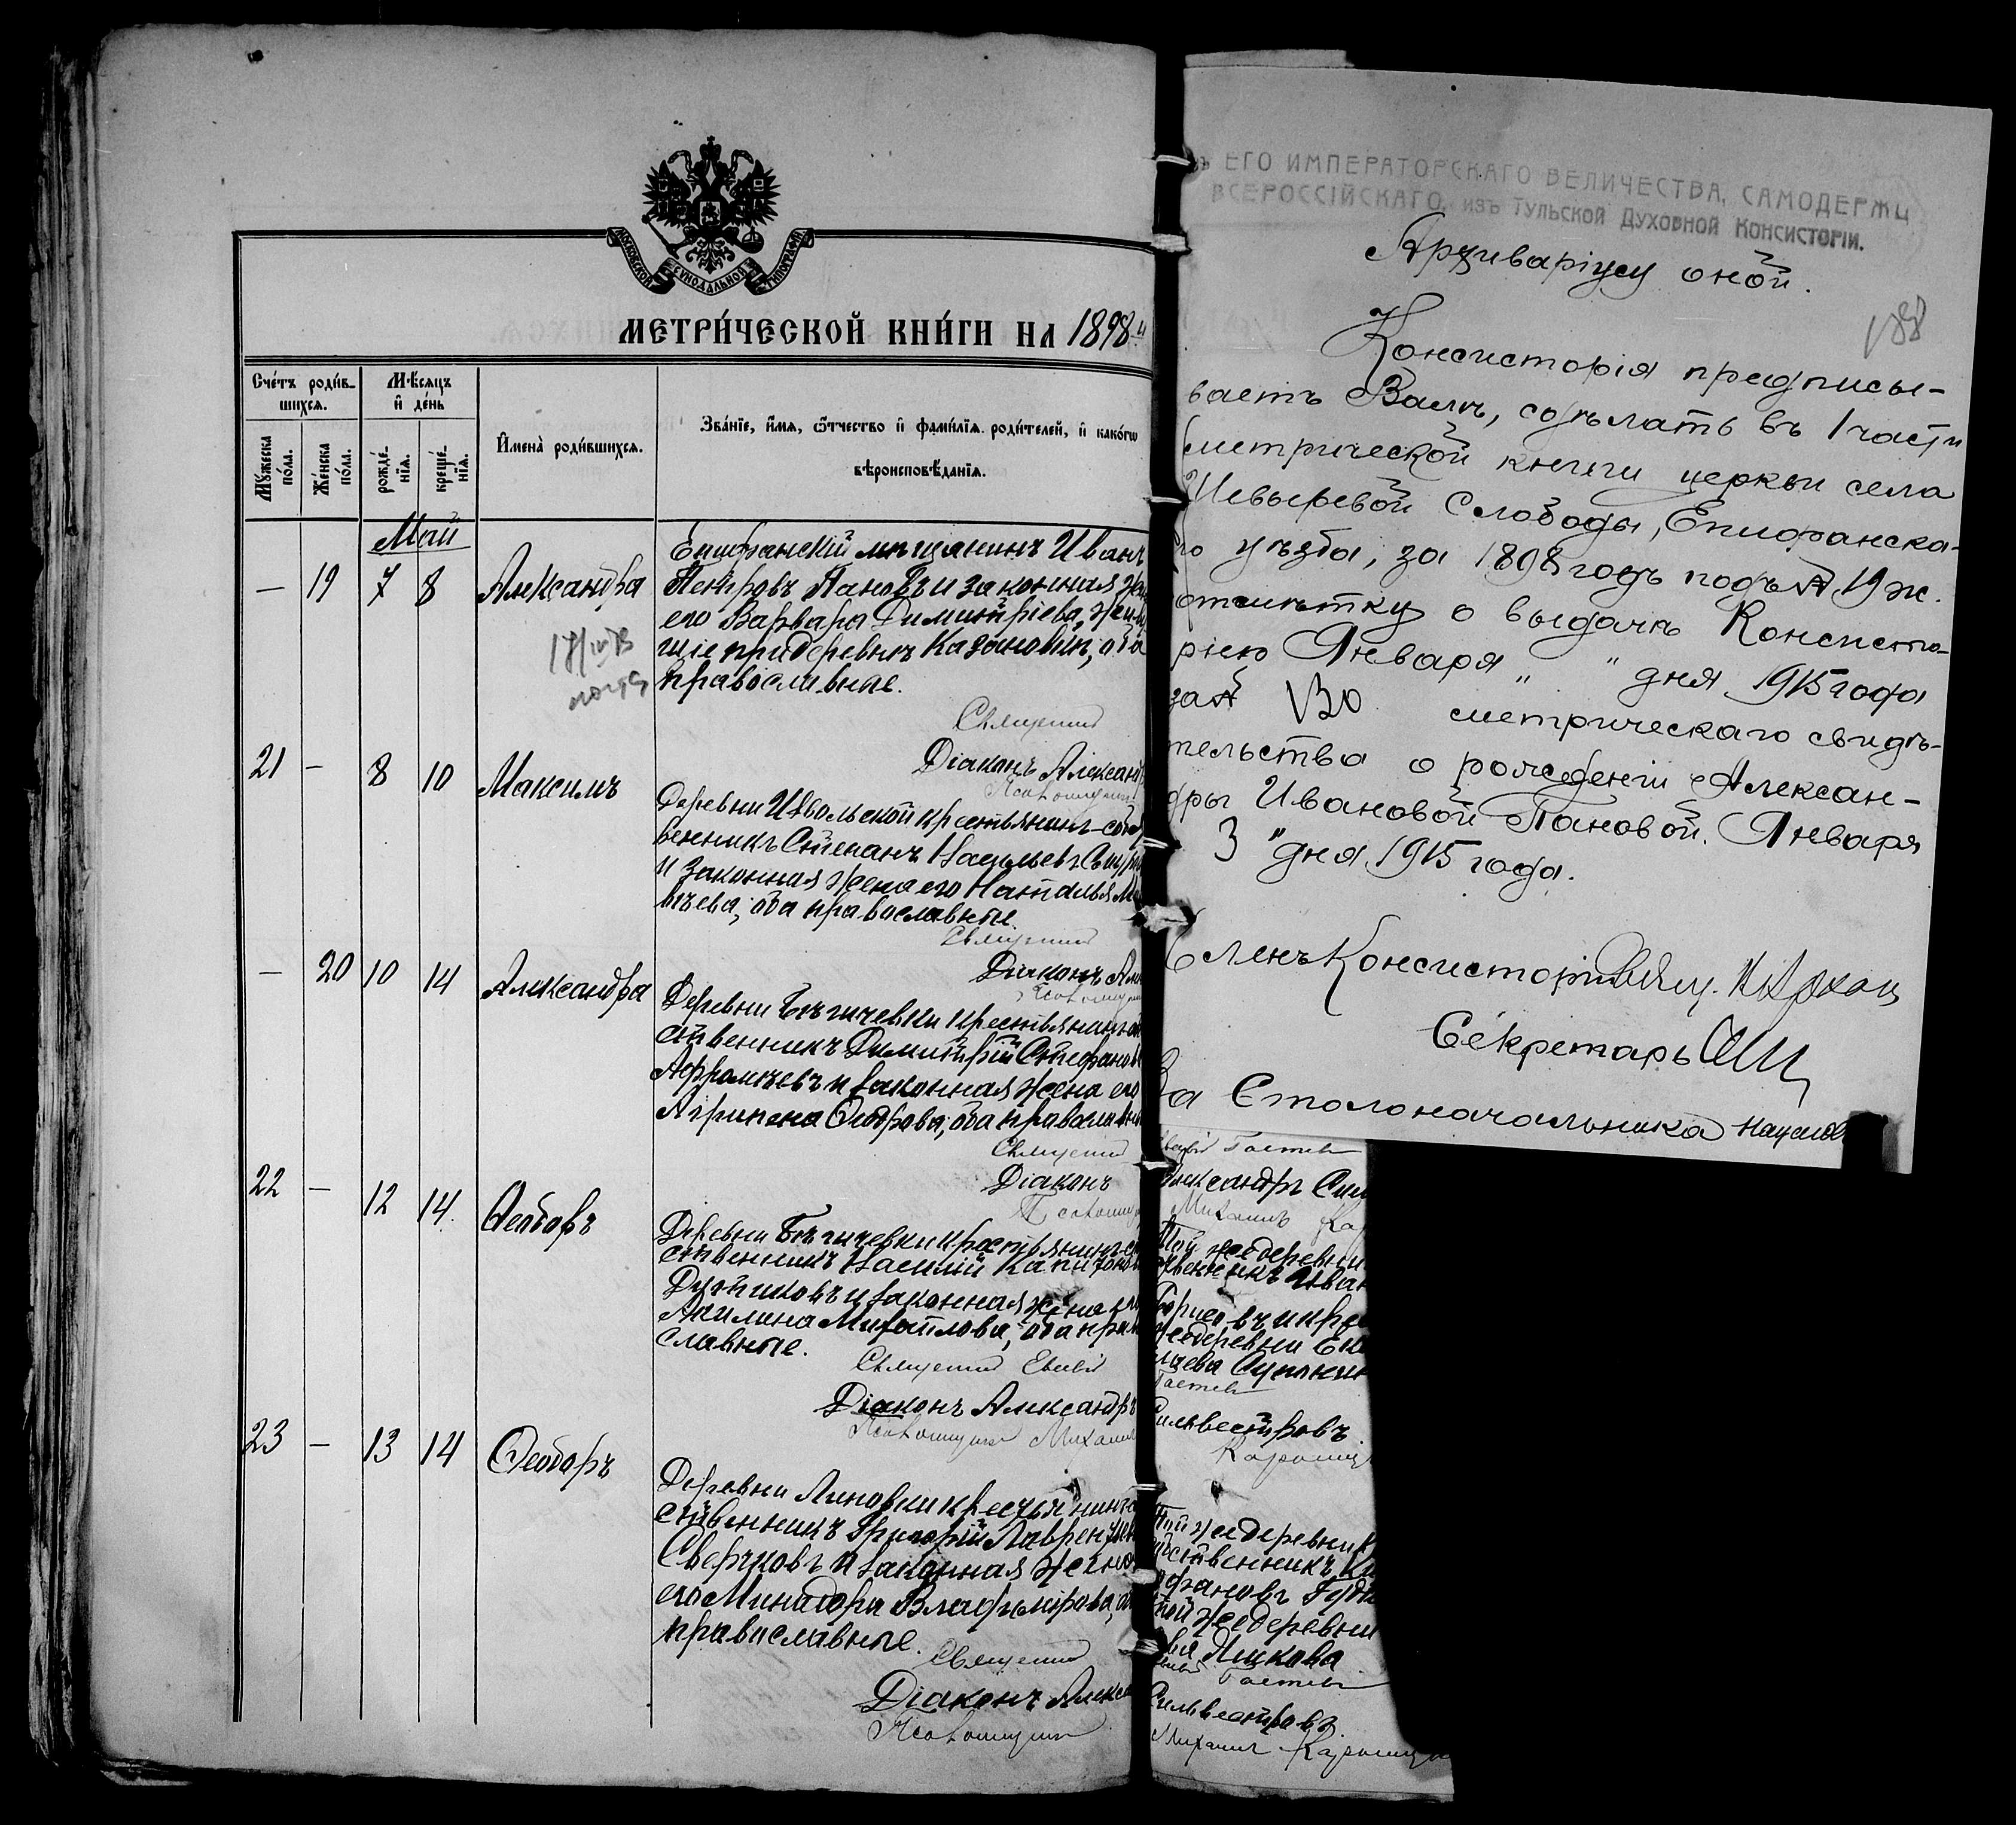 МОСКОВСКОЙ СѴНОДАЛЬНОЙ ТИПОГРАФІИ
МЕТРИ́ЧЕСКОЙ КНИ́ГИ НА 1898 й
Сче́тъ роди́в-
шихсѧ.
Мѣ́сѧцъ
и҆ де́нь
Мꙋ́жеска
по́ла.
Же́нска
по́ла.
рожде́-
нїѧ.
креще́-
нїѧ.
И҆мена̀ роди́вшихсѧ.
Зва́нїе, и҆́мѧ, ѻ҆́тчество и҆ фамѝлїѧ роди́телей, и҆ како́гѡ
вѣроисповѣ́данїѧ.
Май
— 19 7 8 Александра
Епифанскій мѣщанинъ Иванъ
Петровъ Пановъ и законная же
его Варвара Димитріева, живу
щіе при деревнѣ Казановкѣ, оба
православные.
Священникъ
Діаконъ Александ
Псаломщикъ
21 — 8 10 Максимъ
Деревни Извольской крестьянинъ-собст
венникъ Стефанъ Васильевъ
и законная жена его Наталья Ма
вѣева, оба православные.
Священникъ
Діаконъ Але
Псаломщик
— 20 10 14 Александра
Деревни Бѣгичевки крестьянинъ со
ственникъ Димитрій Стефановъ
и законная жена его
Агрипена Ѳеодорова, оба православн
Священник
Діаконъ
Псаломщи
22 — 12 14. Ѳеодоръ
Деревни Бѣгичевки крестьянинъ с
ственникъ Василій Капитонов
и законная жена его
Акилина Михайлова, оба право
славные.
Священникъ Евгеній
Діаконъ Александръ
Псаломщикъ Михаилъ
23 — 13 14 Ѳеодоръ
Деревни Линовки крестьянинъ с
ственникъ Григорій Лаврентьев
Сверчковъ и законная жена
его Минодора Владимірова, оба
православные.
Священникъ
Діаконъ Алекса
Псаломщикъ
ЕГО ИМПЕРАТОРСКАГО ВЕЛИЧЕСТВА, САМОДЕРЖЦ
ВСЕРОССІЙСКАГО, изъ Тульской Духовной Консисторіи.
Архиваріусу оной.
188
Консисторія предписы-
ваетъ Вамъ, сдѣлать въ 1 части
метрической книги церкви села
Шевыревой Слободы, Епифанска-
го уѣзда, за 1898 годъ подъ № 19 ж.
отмѣтку о выдачѣ Консисто-
ріею Января „ " дня 1915 года
за № 130 метрическаго свидѣ-
тельства о рожденіи Алексан-
дры Ивановой Пановой. Января
3 " дня 1915 года.
Членъ Консисторіи Свящ.
Секретарь
За Столоначальника
Гастев
лександръ Сил
Михаилъ Ка
Той же деревни
ственникъ Иван
Борисовъ и кре
же деревни Ек
Гастев
Сильвестровъ
Той же деревни к
ственникъ
той же деревни
Яшкова
Гастев
Сильвестровъ
Михаилъ